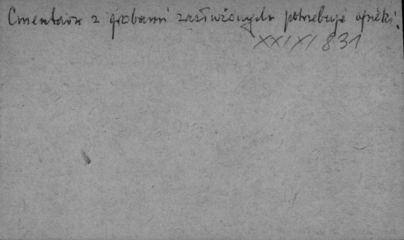 Cmentarz z grobami zasłużonych potrzebuje opieki.
XXIXI831